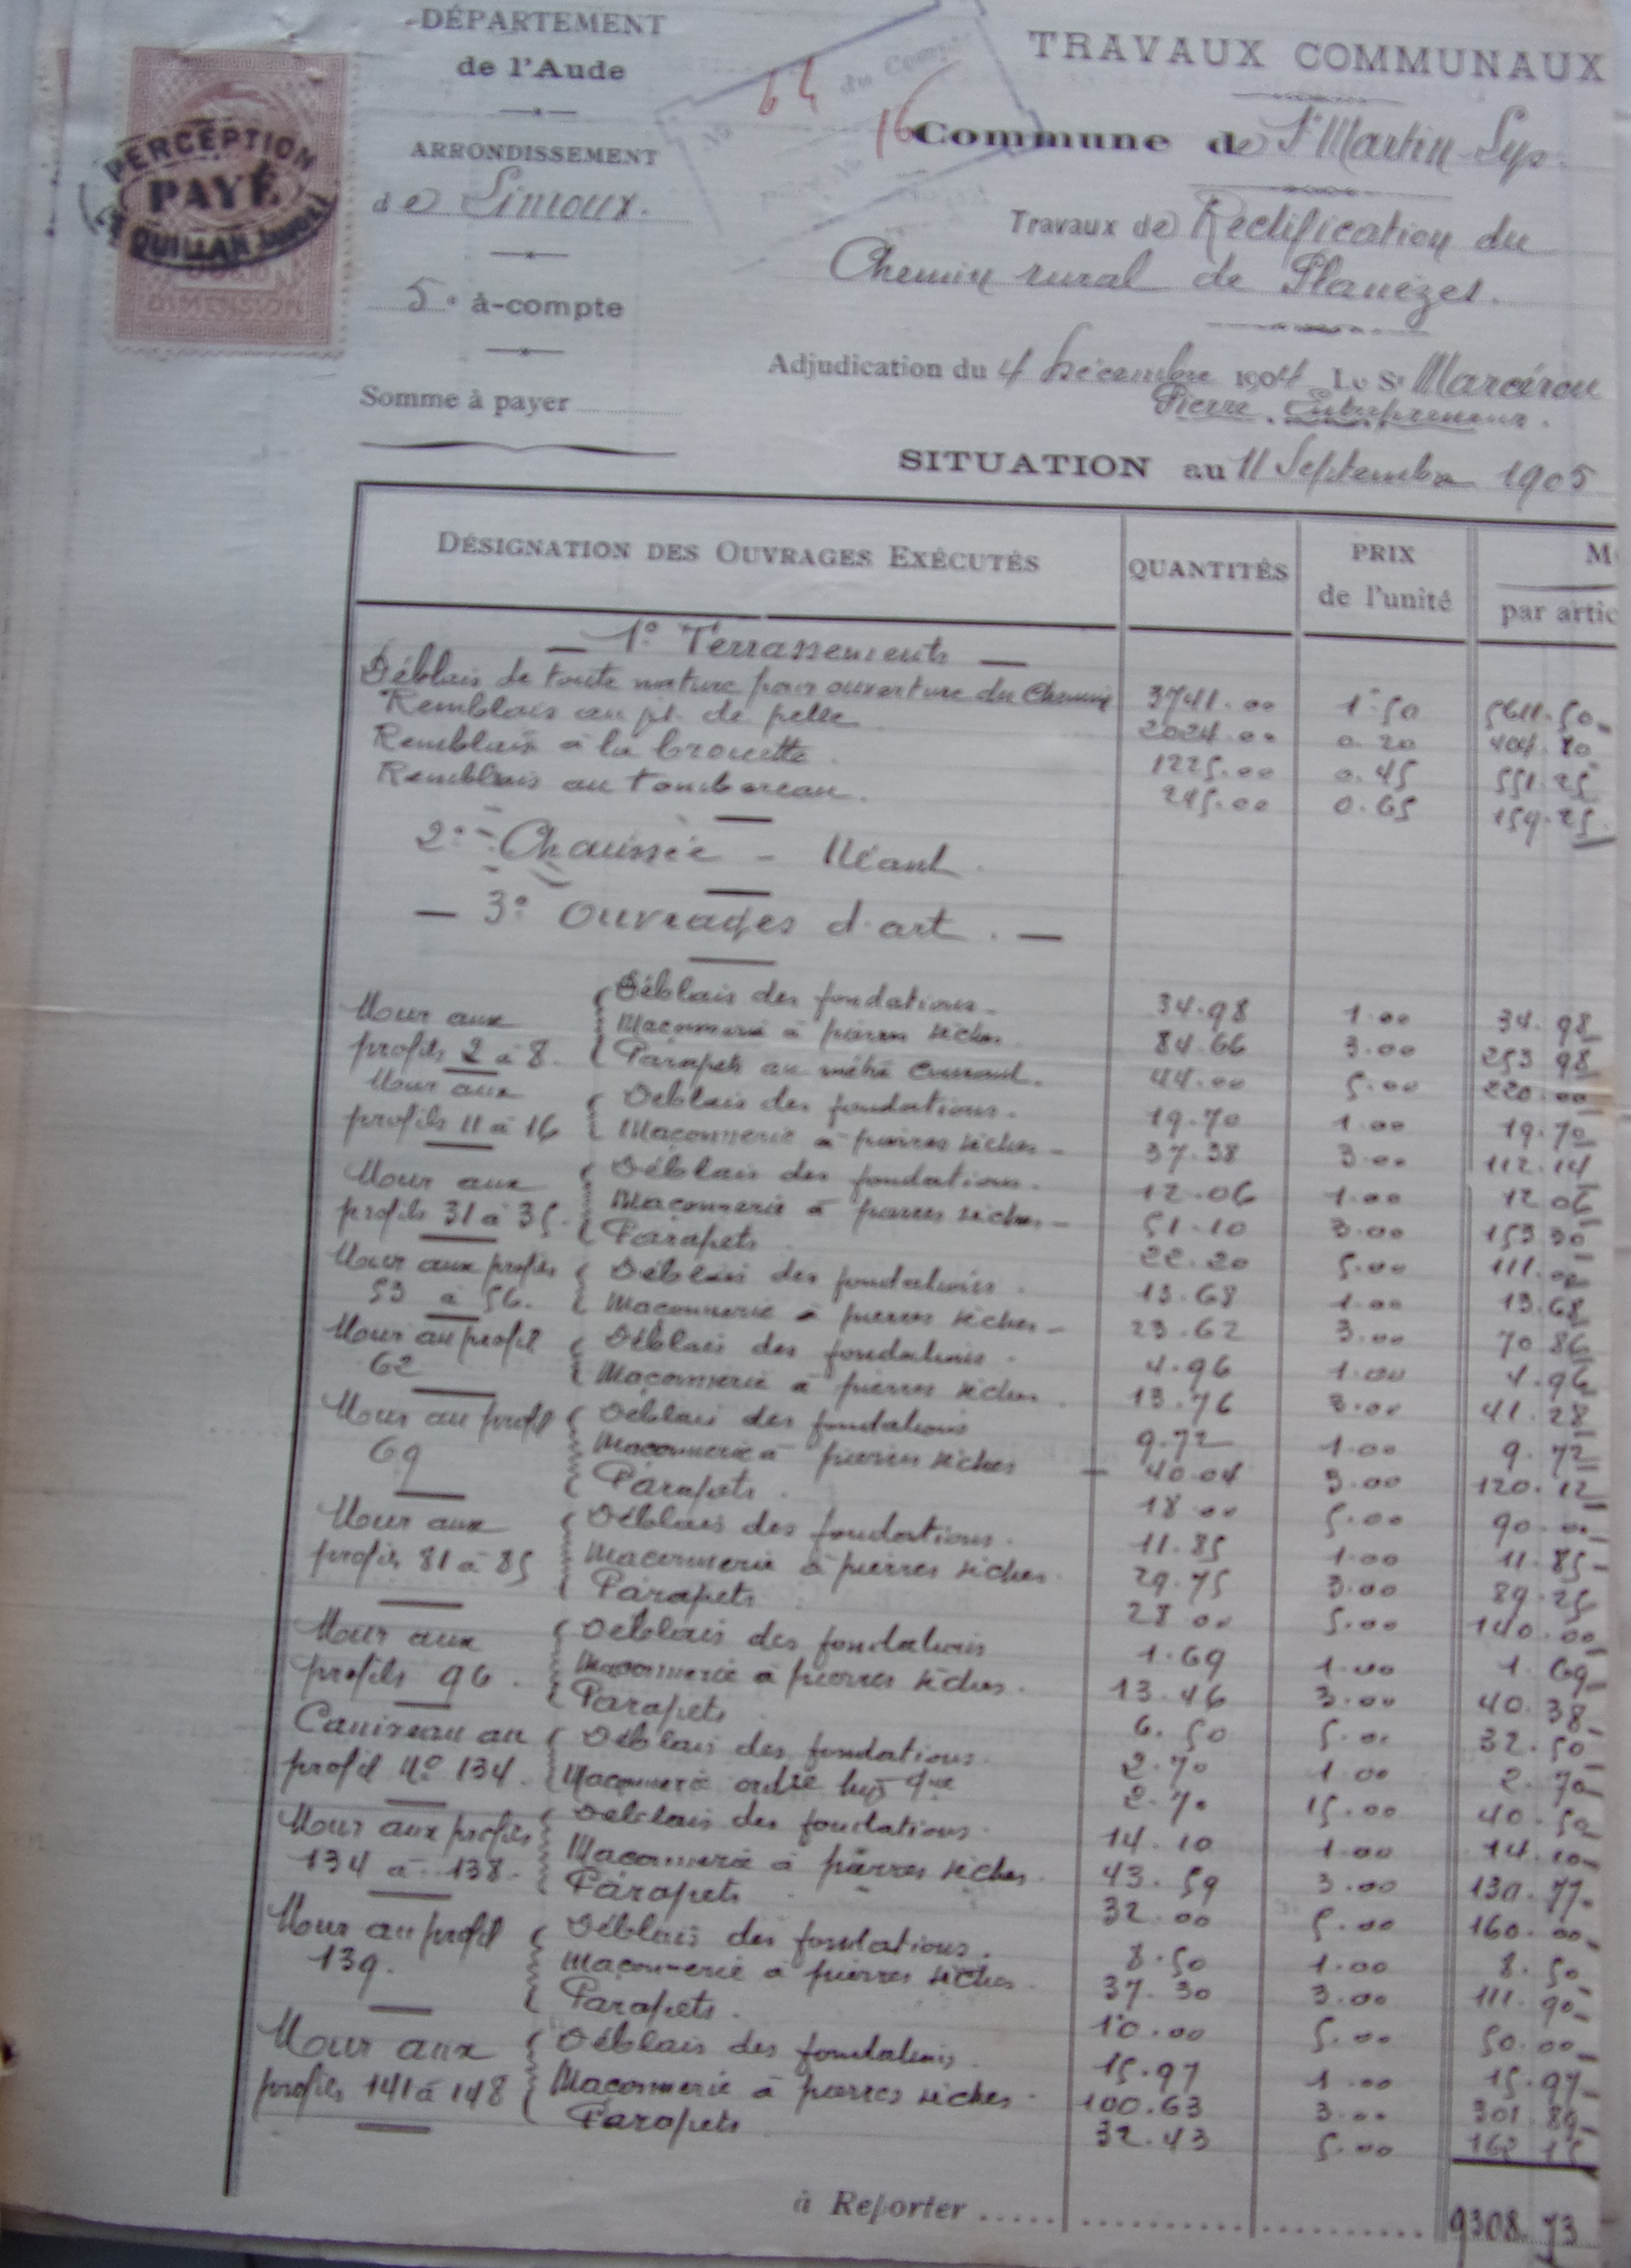 DÉPARTEMENT
de l'Aude
ARRONDISSEMENT
de Limoux.
5e à-compte
Somme à payer
PERCEPTION
PAYÉ
QUILLAN (AUDE)
DIMENSION
No 64 du Compte
16
TRAVAUX COMMUNAUX
Commune de St Martin-Lys.
Travaux de Rectification du
Chemin rural de Planèzes.
Adjudication du 4 Décembre 1904 Le Sr Marcérou
Pierre. Entrepreneur.
SITUATION au 11 Septembre 1905
DÉSIGNATION DES OUVRAGES EXÉCUTÉS QUANTITÉS PRIX de l'unité M
par artic
— 1° Terrassements —
Déblais de toute nature pour ouverture du Chemin 3741.00 1.50 5611.50
Remblais au jet de pelle 2024.00 0.20 404.80
Remblais à la brouette. 1225.00 0.45 551.25
Remblais au tombereau. 245.00 0.65 159.25
2° - Chaussée - Néant.
— 3° Ouvrages d'art. —
Mur aux profils 2 à 8. Déblais des fondations 34.98 1.00 34.98
Maçonnerie à pierres sèches 84.66 3.00 253.98
Parapets au mètre courant. 44.00 5.00 220.00
Mur aux profils 11 à 16 Déblais des fondations. 19.70 1.00 19.70
Maçonnerie à pierres sèches 37.38 3.00 112.14
Mur aux profils 31 à 35. Déblais des fondations. 12.06 1.00 12.06
Maçonnerie à pierres sèches 51.10 3.00 153.30
Parapets 22.20 5.00 111.00
Mur aux profils 53 à 56. Déblais des fondations. 13.68 1.00 13.68
Maçonnerie à pierres sèches 23.62 3.00 70.86
Mur au profil 62 Déblais des fondations. 4.96 1.00 4.96
Maçonnerie à pierres sèches. 13.76 3.00 41.28
Mur au profil 69 Déblais des fondations 9.72 1.00 9.72
Maçonnerie à pierres sèches 40.04 3.00 120.12
Parapets. 18.00 5.00 90.00
Mur aux profils 81 à 85 Déblais des fondations. 11.85 1.00 11.85
Maçonnerie à pierres sèches. 29.75 3.00 89.25
Parapets 28.00 5.00 140.00
Mur aux profils 96. Déblais des fondations 1.69 1.00 1.69
Maçonnerie à pierres sèches. 13.46 3.00 40.38
Parapets 6.50 5.00 32.50
Caniveau au profil No 134. Déblais des fondations. 2.70 1.00 2.70
Maçonnerie ordre hyd que 2.70 15.00 40.50
Mur aux profils 134 à 138. Déblais des fondations. 14.10 1.00 14.10
Maçonnerie à pierres sèches. 43.59 3.00 130.77
Parapets 32.00 5.00 160.00
Mur au profil 139. Déblais des fondations. 8.50 1.00 8.50
Maçonnerie à pierres sèches. 37.30 3.00 111.90
Parapets. 10.00 5.00 50.00
Mur aux profils 141 à 148 Déblais des fondations. 15.97 1.00 15.97
Maçonnerie à pierres sèches. 100.63 3.00 301.89
Parapets 32.43 5.00 162.15
à Reporter ..... 9308.73